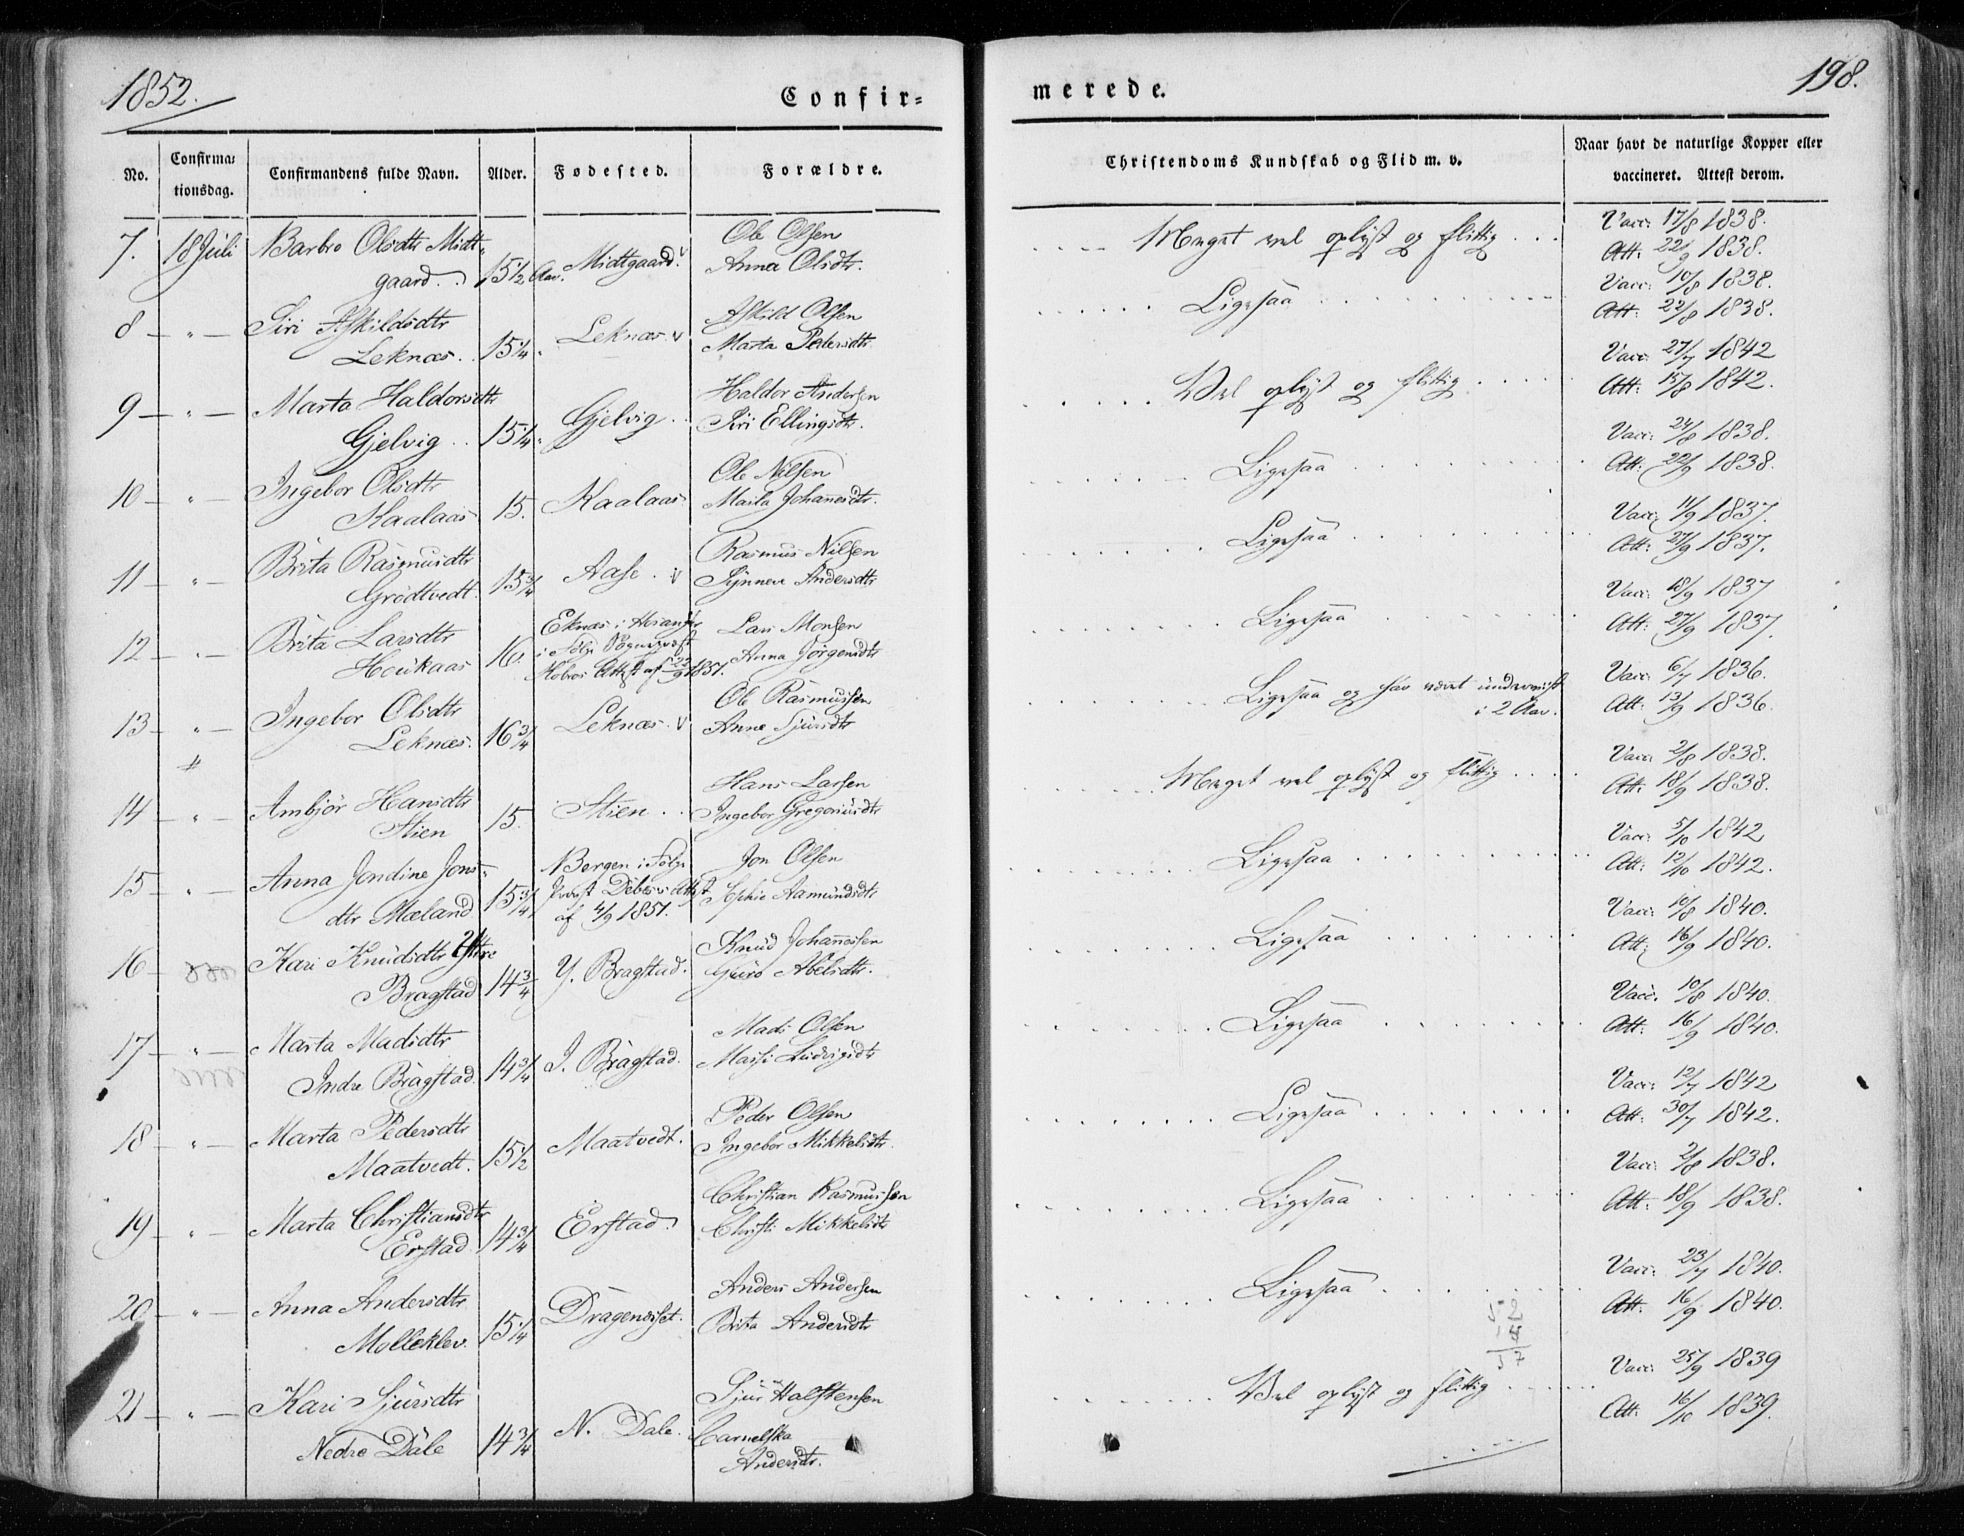 1852.
Confir=
merede.
198.
No.
Confirma=
tionsdag.
Confirmandens fulde Navn.
Alder.
Fødested.
Forældre.
Christendoms Kundskab og Flid m. v.
Naar havt de naturlige Kopper eller
vaccineret. Attest derom.
7. 18 Juli Barbro Olsdtr Midt= Ole Olsen Meget vel oplyst og flittig Vacc: 17/8 1838.
gaard. 15 1/2 Aar. Midtgaard. Anna Olsdtr. Att: 22/9 1838.
8 — " — Siri Askildsdtr Askild Olsen Ligesaa Vacc: 10/8 1838.
Leknæs. 15 1/4. Leknæs Marta Pedersdtr Att: 22/8 1838.
9 — " — Marta Haldorsdtr Haldor Andersen Vel oplyst og flittig Vacc: 27/7 1842
Gjelvig 15 1/4. Gjelvig Siri Ellingsdtr. Att: 15/8 1842.
10 — " — Ingebor Olsdtr Ole Nilsen Ligesaa Vacc: 24/8 1838.
Kaalaas 15. Kaalaas Marta Johanesdtr. Att: 22/9 1838.
11 — " — Brita Rasmusdtr Rasmus Nilsen Ligesaa Vacc: 11/9 1837.
Grødtvedt. 15 3/4 Aase Synneve Andersdtr Att: 27/9 1837.
12 — " — Brita Larsdtr Eknæs i Lars Monsen Ligesaa Vacc: 18/9 1837
Houkaas 16. i Følge Anna Jørgensdtr Att: 27/9 1837.
Attest af 23/9 1851.
13 — " — Ingebor Olsdtr Ole Rasmussen Ligesaa og har været underviist Vacc: 6/7 1836.
Leknæs. 16 3/4 Leknæs Anna Sjursdtr i 2 Aar. Att: 13/9 1836.
14 — " — Ambjør Hansdtr Hans Larsen Meget vel oplyst og flittig Vacc: 2/8 1838.
Stien 15. Stien Ingebor Gregoriusdtr Att: 18/9 1838.
15 — " — Anna Jondine Jons= Bergen i Følge Jon Olsen Ligesaa Vacc: 5/10 1842
dtr Mæland 15 3/4 Provst Debes's Attest Sophie Aamundsdtr Att: 12/10 1842.
af 4/9 1851.
16 — Kari Knudsdtr Ystre Knud Johanessen Ligesaa Vacc: 10/8 1840.
Bragstad 14 3/4 Y. Bragstad. Guro Abelsdtr. Att: 16/9 1840.
17 — " — Marta Madsdtr Mads Olsen Ligesaa Vacc. 10/8 1840.
Indre Bragstad. 14 3/4 I. Bragstad. Massi Ludvigsdtr Att: 16/9 1840.
18 — " — Marta Pedersdtr Peder Olsen Ligesaa Vacc: 12/7 1842
Maatvedt. 15 1/2 Maatvedt. Ingebor Mikkelsdtr Att: 30/7 1842.
19 — " — Marta Christiansdtr Christian Rasmussen Ligesaa Vacc: 2/8 1838.
Erstad 14 3/4 Erstad. Christi Mikkelsdtr Att: 18/9 1838.
20 — " — Anna Andersdtr Anders Andersen Ligesaa Vacc: 23/7 1840.
Molleklev. 15 1/4 Dragenæset. Brita Andersdtr Att: 16/9 1840.
21 — " — Kari Sjursdtr Sjur Halstensen Vel oplyst og flittig Vacc: 25/9 1839
Nedre Dale 14 3/4 N. Dale. Carnelska Att: 16/10 1839.
Andersdtr.